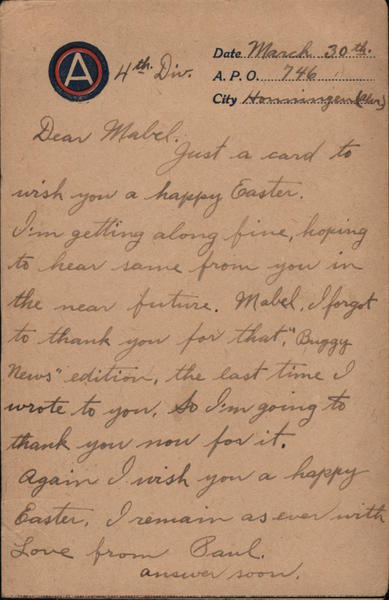 A
4th. Div.
Date March 30th.
A. P. O. 746
City Honningen (Rhr)
Dear Mabel.
Just a card to
wish you a happy Easter.
I'm getting along fine, hoping
to hear same from you in
the near future. Mabel, I forgot
to thank you for that, "Buggy
News" edition, the last time I
wrote to you. So I'm going to
thank you now for it.
Again I wish you a happy
Easter. I remain as ever with
Love from Paul.
answer soon.